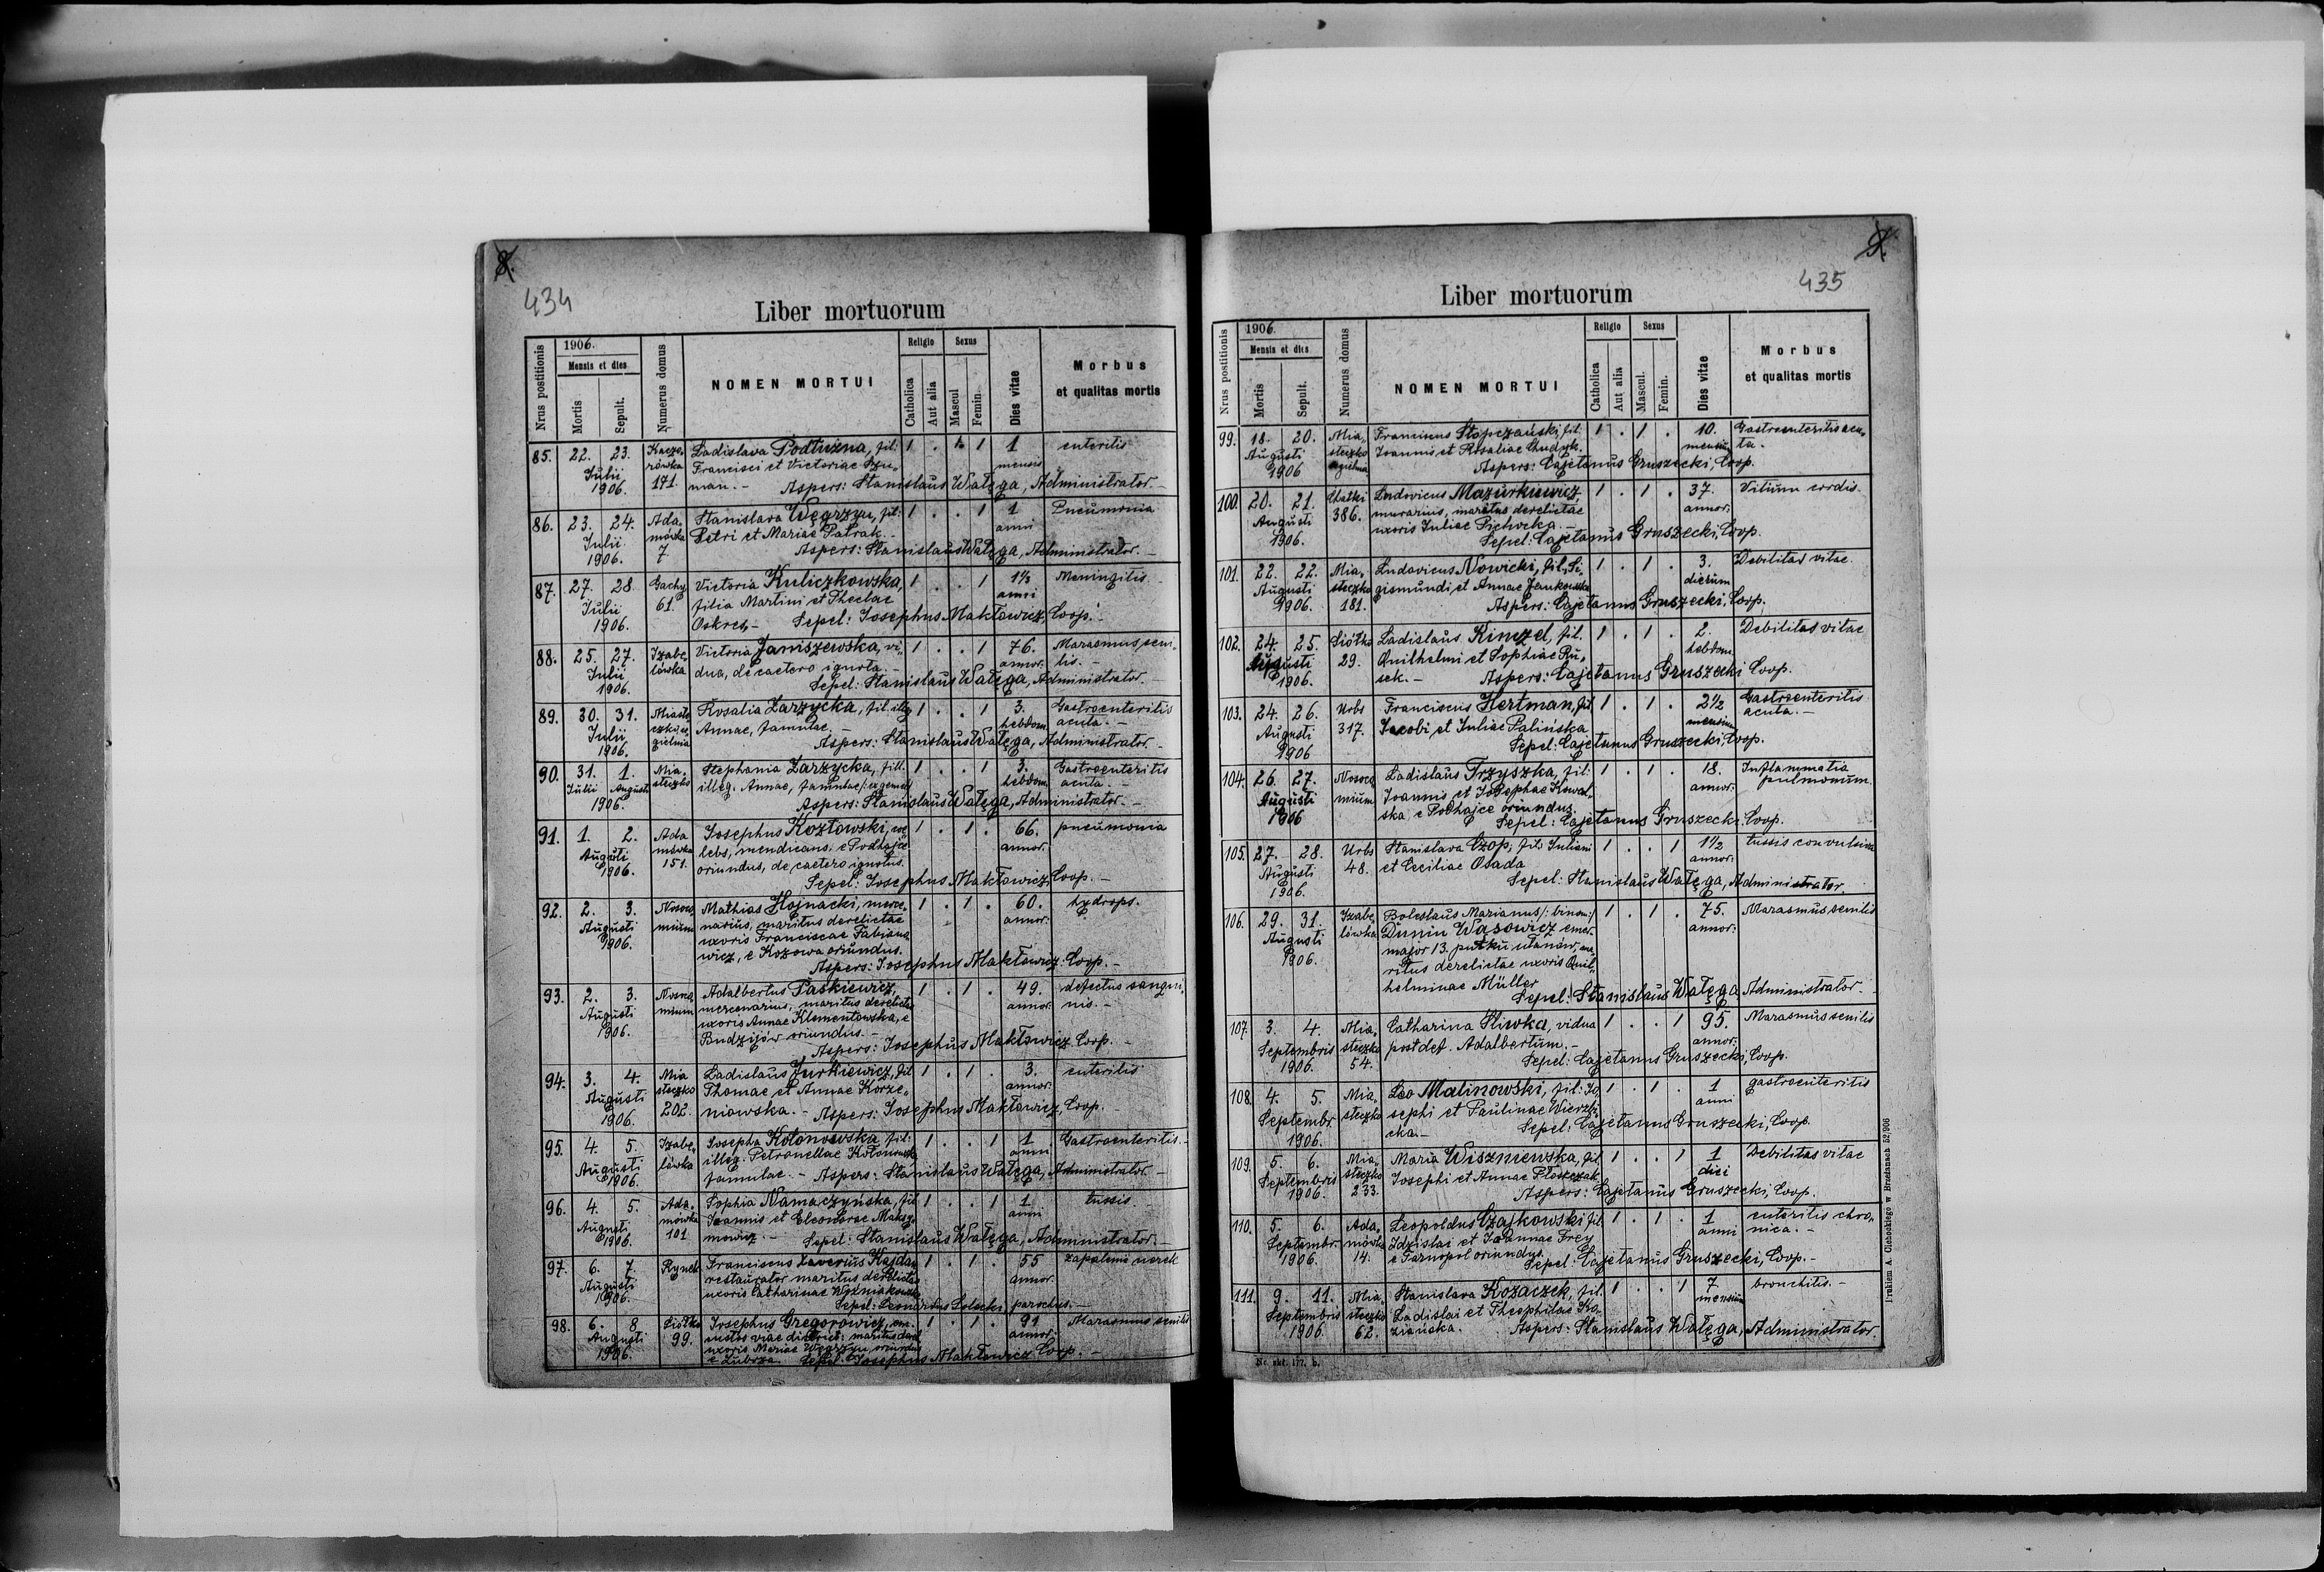 8.
434
Liber mortuorum
Nrus postitionis
1906.
Mensis et dies
Mortis
Sepult.
Numerus domus
NOMEN MORTUI
Religio
Catholica
Aut alia
Sexus
Mascul
Femin.
Dies vitae
Morbus
et qualitas mortis
85. 22. 23. Ladislava Podłużna, fil: 1 . 1 1 enteritis
Julii Francisci et Victoriae Szu„ mensis
1906. 171. man. – Aspers: Stanislaus Wałęga, Administrator. –
86. 23. 24. Ada„ Stanislava Węgrzyn, fil: 1 . . 1 1 Pneumonia
Julii mówka Petri et Mariae Patrak. anni
1906. 7 Aspers: Stanislaus Wałęga, Administrator. –
87. 27. 28. Gachy Victoria Kuliczkowska, 1 . . 1 1½ Meningitis.
Julii 61. filia Martini et Theclae anni
1906. Oskres, – Sepel: Josephus Makłowicz, Coop. –
88. 25. 27. Izabe„ Victoria Janiszewska, vi„ 1 . . 1 76. Marasmus seni„
Julii lówka dua, de caetero ignota. – annor. lis. –
1906. Sepel: Stanislaus Wałęga, Administrator. –
89. 30. 31. Miaste Rosalia Zarzycka, fil. illeg 1 . . 1 3. Gastroenteritis
Julii Annae, famulae. – hebdom acuta. –
1906. Aspers: Stanislaus Wałęga, Administrator. –
90. 31. 1. Mia„ Stephania Zarzycka, fil. 1 . . 1 3. Gastroenteritis
Julii Augusti steczko illeg. Annae, famulae /: ex gemel: hebdom. acuta. –
1906. Aspers: Stanislaus Wałęga, Administrator. –
91. 1. 2. Ada Josephus Kozłowski, coe„ 1 . 1 . 66. pneumonia
Augusti mówka lebs, mendicans, e Podhajce annor.
1906. 151. oriundus, de caetero ignotus.
Sepel: Josephus Makłowicz Coop. –
92. 2. 3. Nosoco Mathias Hojnacki, merce„ 1 . 1 . 60. hydrops.
Augusti mium narius, maritus derelictae annor.
1906. uxoris Franciscae Fabiano
wicz, e Kozowa oriundus.
Aspers: Josephus Makłowicz Coop. –
93. 2. 3. Adalbertus Paśkiewicz, 1 . 1 . 49. defectus sangui„
Augusti mium mercenarius, maritus derelictae annor. nis. –
1906. uxoris Annae Klementowska, e
Budzijów oriundus. –
Aspers: Josephus Makłowicz Coop. –
94. 3. 4. Mia Ladislaus Jurkiewicz, fil 1 . 1 . 3. enteritis
Augusti steczko Thomae et Annae Korze„ annor.
1906. 202. niowska. – Aspers: Josephus Makłowicz, Coop.
95. 4. 5. Izabe„ Josepha Kotonowska fil: 1 . . 1 1 Gastroenteritis. –
Augusti lówka illeg. Petronellae Kotonowska anni
1906. famulae. – Aspers: Stanislaus Wałęga, Administrator. –
96. 4. 5. Ada„ Sophia Namaczyńska, fil 1 . . 1 1 tussis
Augusti mówka Joannis et Eleonorae Maksy„ anni
1906. 101 mowicz. – Sepel: Stanislaus Wałęga, Administrator. –
97. 6. 7. Rynek Franciscus Xaverius Kajdan 1 . 1 . 55 zapalenie nerek
Augusti restaurator maritus derelictae annor.
1906. uxoris Catharinae
Sepel: Leonardus Solecki parochus. –
98. 6. 8 Siółko Josephus Gregorowicz, em. 1 . 1 . 91 Marasmus senilis
Augusti 99. custos viae maritus annor.
1906. uxoris Mariae Węgrzyn, oriundus
e Sepel: Josephus Makłowicz Coop. –
9.
435
Liber mortuorum
Nrus postitionis
1906.
Mensis et dies
Mortis
Sepult.
Numerus domus
NOMEN MORTUI
Religio
Catholica
Aut alia
Sexus
Mascul.
Femin.
Dies vitae
Morbus
et qualitas mortis
99. 18. 20. Mia„ Franciscus Stopczański, fil. 1 . 1 . 10. Gastroenteritis acu„
Augusti steczko Joannis et Rosaliae Chudyk. mensium ta.
1906 Aspers: Cajetanus Gruszecki, Coop.
100. 20. 21. Chatki Ludovicus Mazurkiewicz, 1 . 1 . 37. Vitium cordis.
Augusti 386. murarius, maritus derelictae annor.
1906. uxoris Juliae Pichocka. –
Sepel: Cajetanus Gruszecki, Coop.
101. 22. 22. Mia„ Ludovicus Nowicki, fil. Si„ 1 . 1 . 3. Debilitas vitae.
Augusti steczko gismundi et Annae Jankowska dierum
1906. 181. Aspers: Cajetanus Gruszecki, Coop.
102. 24. 25. Siółko Ladislaus Kinzel, fil. 1 . 1 . 2. Debilitas vitae
Augusti 29. Quilhelmi et Sophiae Ru„ hebdom.
1906. sek. – Aspers: Cajetanus Gruszecki Coop.
103. 24. 26. Urbs Franciscus Hertman, fil 1 . 1 . 2½ Gastroenteritis
Augusti 317. Jacobi et Juliae Palińska mensium acuta. –
1906 Sepel: Cajetanus Gruszecki, Coop.
104. 26. 27. Nosoco Ladislaus Trzyszka, fil: 1 . 1 . 18. Inflammatia
Augusti mium Joannis et Josephae Kowal„ annor. pulmonum.
1906 ska e Podhajce oriundus.
Sepel: Cajetanus Gruszecki Coop.
105. 27. 28. Urbs Stanislava Czop, fil. Juliani 1 . . 1 1½ tussis convulsiva
Augusti 48. et Ceciliae Osada annor.
1906. Sepel: Stanislaus Wałęga, Administrator
106. 29. 31. Izabe„ Boleslaus Marianus /: binom:/ 1 . 1 . 75. Marasmus senilis
Augusti lówka Dunin Wąsowicz emer. annor.
1906. major 13. pułku ułanów, ma„
ritus derelictae uxoris Quil„
helminae Müller
Sepel: Stanislaus Wałęga Administrator. –
107. 3. 4. Mia„ Catharina Śliwka, vidua 1 . . 1 95. Marasmus senilis
Septembris steczko post def. Adalbertum. – annor.
1906. 54. Sepel: Cajetanus Gruszecki, Coop.
108. 4. 5. Mia„ Leo Malinowski, fil: Jo„ 1 . 1 . 1 gastroenteritis
Septembr. steczko sephi et Paulinae Wierzbi„ anni
1906. cka. – Sepel: Cajetanus Gruszecki, Coop.
109. 5. 6. Mia„ Maria Wiszniewska, fil 1 . . 1 1 Debilitas vitae
Septembris steczko Josephi et Annae Płoszczak diei
1906. 233. Aspers: Cajetanus Gruszecki, Coop.
110. 5. 6. Ada„ Leopoldus Czajkowski fil. 1 . 1 . 1 enteritis chro„
Septembr. mówka Idzislai et Joannae Frey anni nica. –
1906. 14. e Tarnopol oriundus. Sepel: Cajetanus Gruszecki, Coop. –
111. 9. 11. Mia„ Stanislava Kozaczek, fil. 1 . . 1 7 bronchitis. –
Septembris steczko Ladislai et Theophilae Ko„ mensium
1906. 62. ziańska. Aspers: Stanislaus Wałęga, Administrator.
Drukiem A. Ciehockiego w Brzeżanach 52/906
Nr. skł. 177. b.